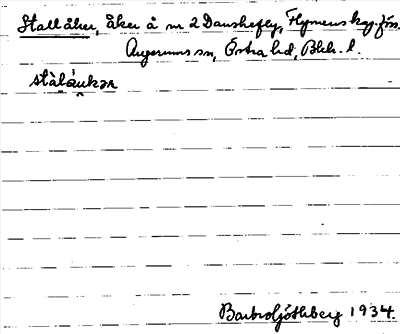 Stallåker, åker å nr 2 Danskefly, Flymens kap.förs.
Augerums sn, Östra hd, Blek. l.
stàlàukər
Barbro Ljöthberg 1934.